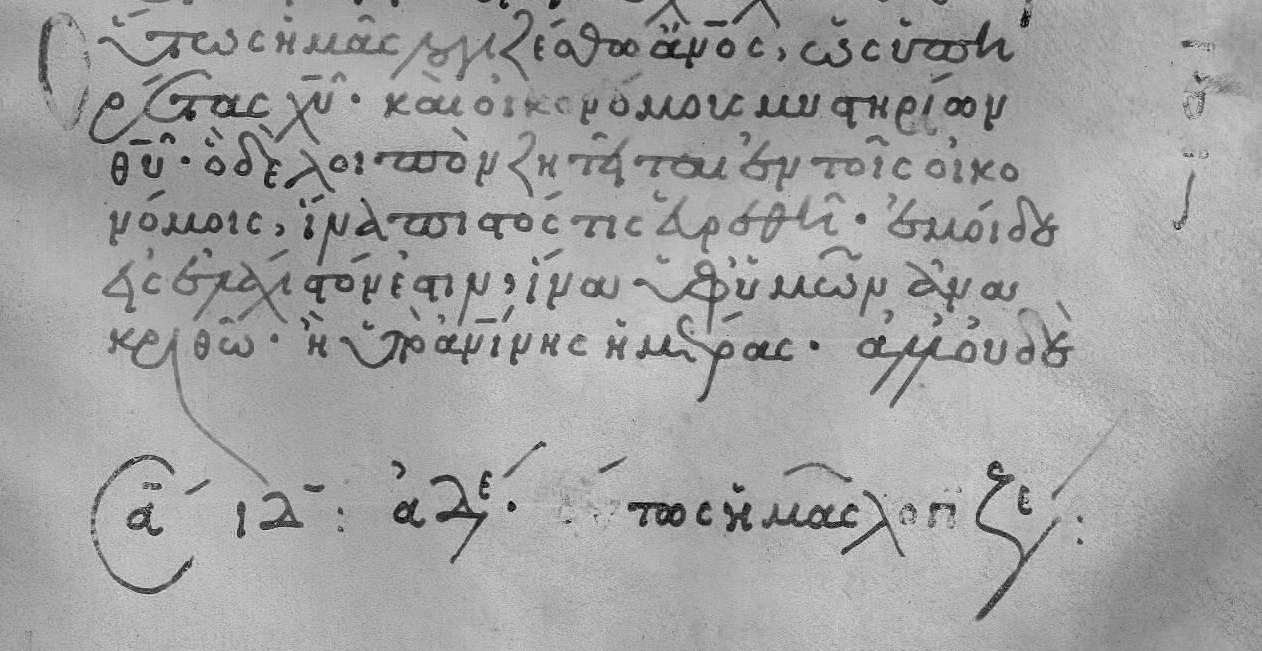 Οὕτως ἡμᾶς λογιζέσθω ἄνος, ὡς ὑπη
ρέτας χῦ· καὶ οἰκονόμους μυστηρίων
θῦ· ὃ δὲ λοιπὸν ζητεῖται ἐν τοῖς οἰκο
νόμοις, ἵνα πιστός τις εὑρεθῆ· ἐμοὶ δὲ
εἰς ἐλάχιστόν ἐστιν, ἵνα ὑφ' ὑμῶν ἀνα
κριθῶ· ἢ ὑπὸ ἀνίνης ἡμέρας· ἀλλ' οὐδὲ
ιδ: ἀδε· τως ἡμᾶς λογιζε: